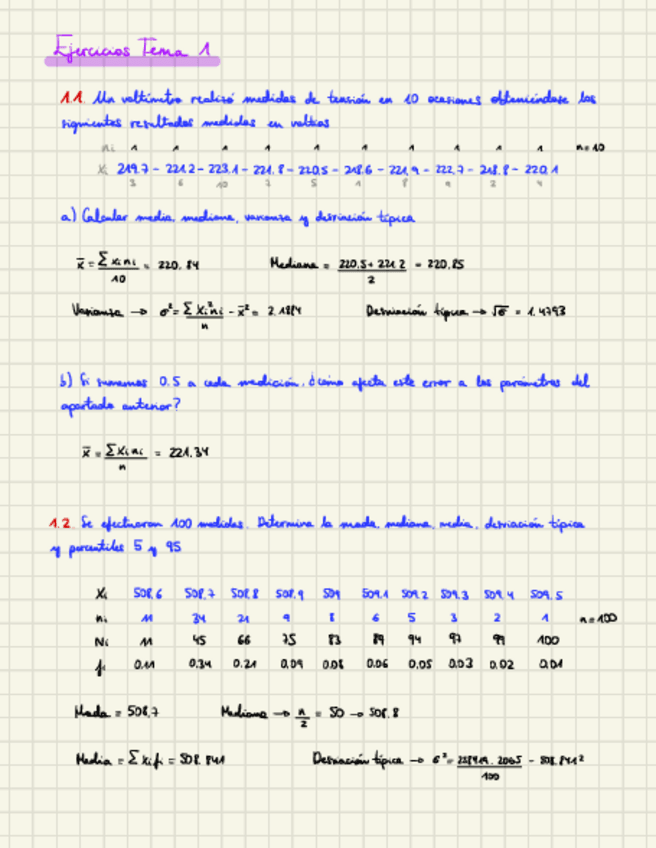 Ejercicios Tema 1
1.1. Un voltímetro realizó medidas de tensión en 10 ocasiones obteniéndose los
siguientes resultados medidos en voltios
ni 1 1 1 1 1 1 1 1 1 1 n=10
Xi 219.7 - 221.2 - 223.1 - 221.8 - 220.5 - 218.6 - 221.9 - 222.7 - 218.8 - 220.1
3 6 10 7 5 1 8 9 2 4
a) Calcular media, mediana, varianza y desviación típica
x̄ = Σ xi ni / 10 = 220.84 Mediana = 220.5 + 221.2 / 2 = 220.85
Varianza → σ² = Σ xi² ni / n - x̄² = 2.1884 Desviación típica → √σ = 1.4793
b) Si sumamos 0.5 a cada medición, ¿cómo afecta este error a los parámetros del
apartado anterior?
x̄ = Σ xi ni / n = 221.34
1.2. Se efectuaron 100 medidas. Determina la moda, mediana, media, desviación típica
y percentiles 5 y 95
Xi 508.6 508.7 508.8 508.9 509 509.1 509.2 509.3 509.4 509.5
ni 11 34 21 9 8 6 5 3 2 1 n=100
Ni 11 45 66 75 83 89 94 97 99 100
fi 0.11 0.34 0.21 0.09 0.08 0.06 0.05 0.03 0.02 0.01
Moda = 508.7 Mediana → n/2 = 50 → 508.8
Media = Σ xi fi = 508.841 Desviación típica → σ² = / 100 - 508.841²